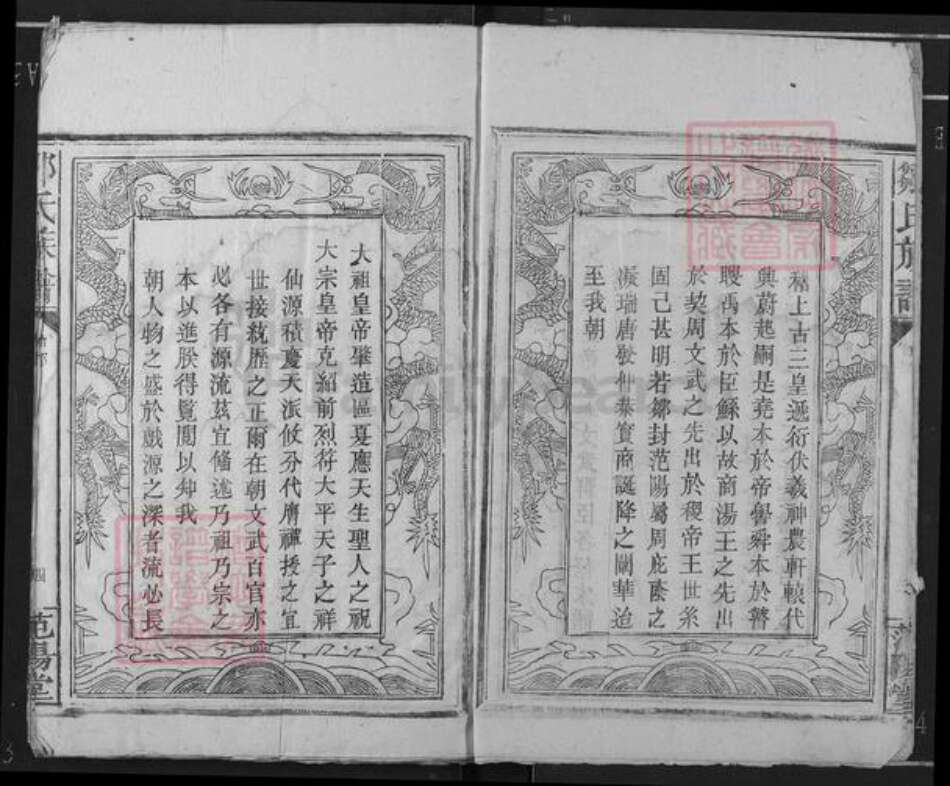 鄒氏族譜
稽上古三皇遞衍伏羲神農軒轅代
興蔚起嗣是堯本於帝嚳舜本於瞽
瞍禹本於臣鯀以故商湯王之先出
於契周文武之先出於稷帝王世系
固已甚明若鄒封范陽屬周庇蔭之
凝瑞唐發仲葉實商誕降之闡華迨
至我朝
太祖皇帝肇造區夏應天生聖人之祝
太宗皇帝克紹前烈符太平天子之祥
仙源積慶天派攸分代膺禪授之宜
世接統歷之正爾在朝文武百官亦
必各有源流茲宜條述乃祖乃宗之
本以進朕得覽閱以知我
朝人物之盛於戲源之深者流必長
氏族譜
四
范陽堂